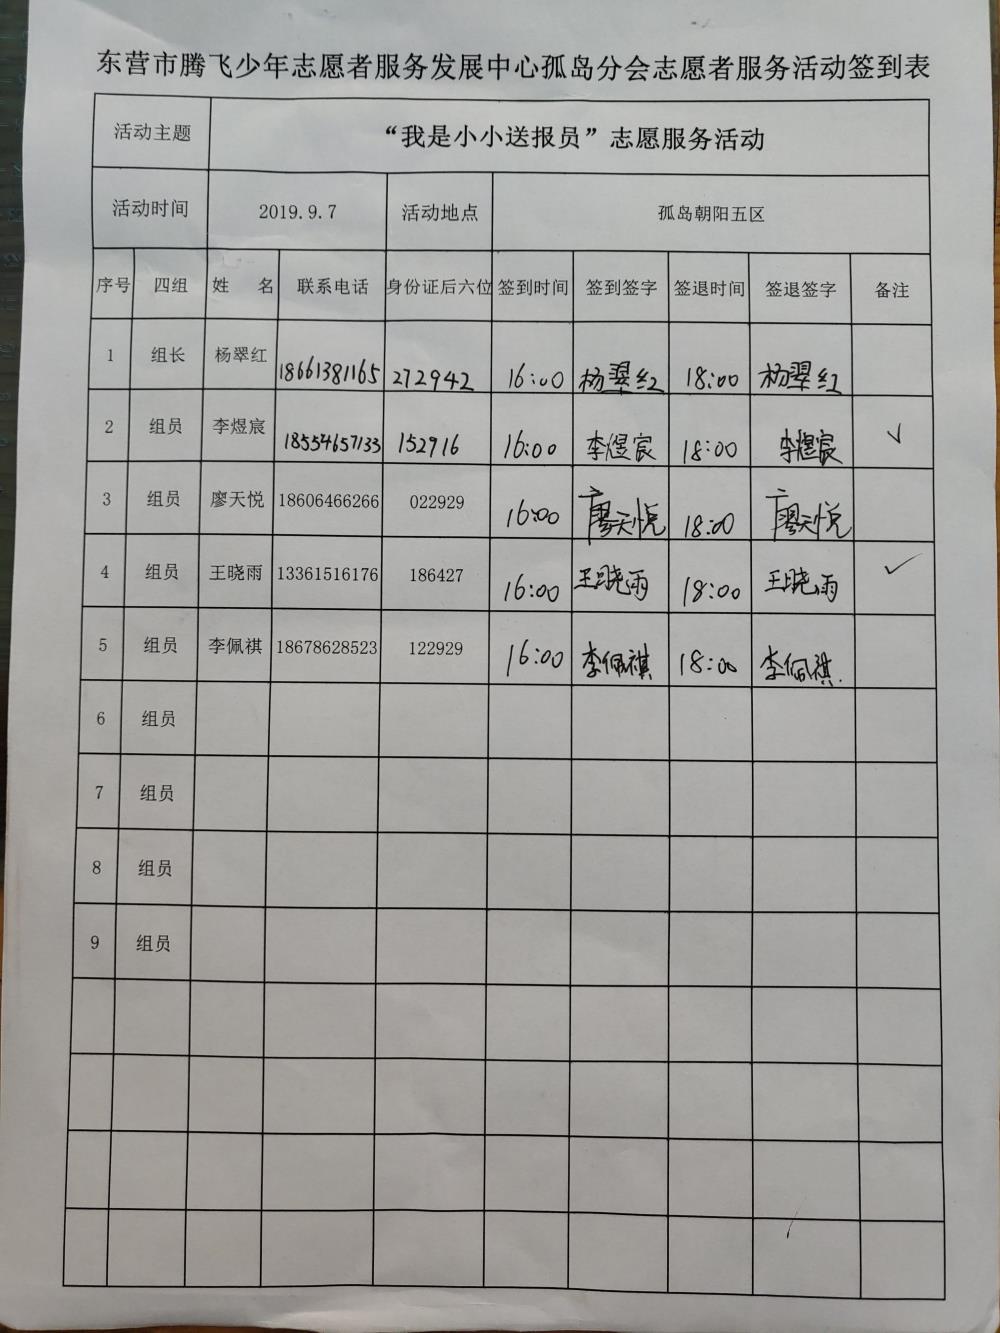 东营市腾飞少年志愿者服务发展中心孤岛分会志愿者服务活动签到表
活动主题 “我是小小送报员”志愿服务活动
活动时间 2019.9.7 活动地点 孤岛朝阳五区
序号 四组 姓 名 联系电话 身份证后六位 签到时间 签到签字 签退时间 签退签字 备注
1 组长 杨翠红 18661381165 272942 16:00 杨翠红 18:00 杨翠红
2 组员 李煜宸 18554657133 152916 16:00 李煜宸 18:00 李煜宸 ✓
3 组员 廖天悦 18606466266 022929 16:00 廖天悦 18:00 廖天悦
4 组员 王晓雨 13361516176 186427 16:00 王晓雨 18:00 王晓雨 ✓
5 组员 李佩祺 18678628523 122929 16:00 李佩祺 18:00 李佩祺.
6 组员
7 组员
8 组员
9 组员